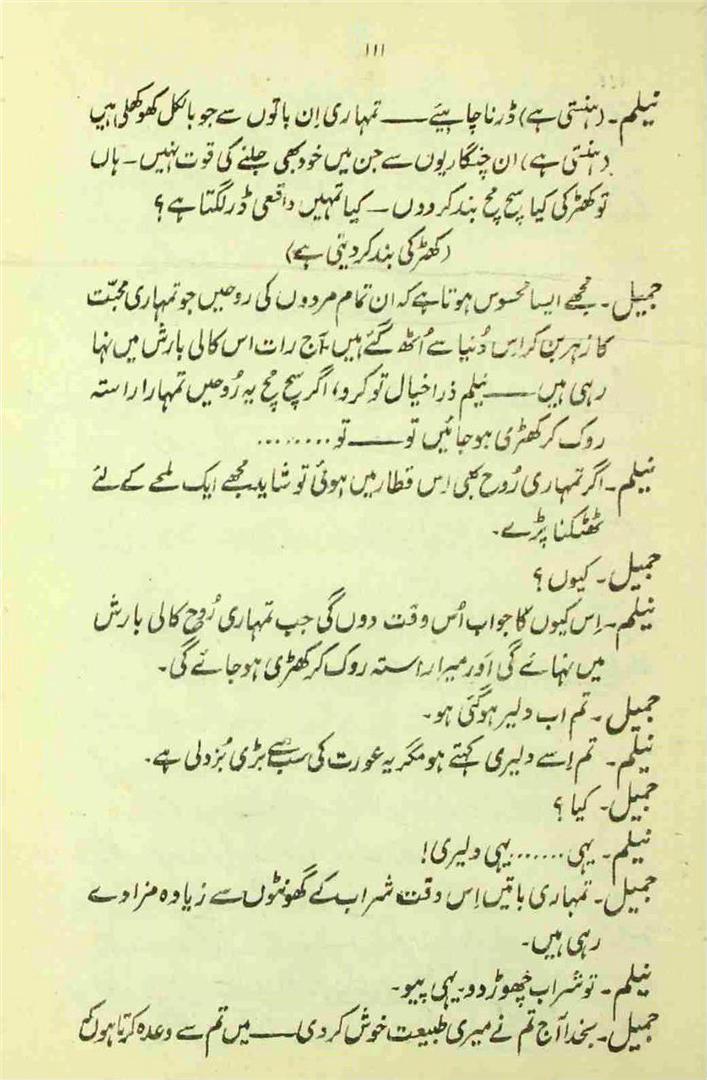 ۱۱۱
نیلم۔ (ہنستی ہے) ڈرنا چاہیئے ــــ تمہاری اِن باتوں سے جو بالکل کھوکھلی ہیں
(ہنستی ہے) ان چنگاریوں سے جن میں خود بھی جلنے کی قوت نہیں۔ ہاں
تو کھڑکی کیا سچ مچ بند کر دوں ۔ کیا تمہیں واقعی ڈر لگتا ہے؟
(کھڑکی بند کر دیتی ہے)
جمیل۔ مجھے ایسا محسوس ہوتا ہے کہ ان تمام مردوں کی روحیں جو تمہاری محبّت
کا زہر بن کر اِس دُنیا سے اُٹھ گئے ہیں۔ آج رات اس کالی بارش میں نہا
رہی ہیں ــــ نیلم ذرا خیال تو کرو، اگر سچ مچ یہ رُوحیں تمہارا راستہ
روک کر کھڑی ہو جائیں تو ــــ تو ........
نیلم۔ اگر تمہاری رُوح بھی اِس قطار میں ہوئی تو شاید مجھے ایک لمحے کے لئے
ٹھٹکنا پڑے۔
جمیل۔ کیوں؟
نیلم۔ اِس کیوں کا جواب اُس وقت دوں گی جب تمہاری رُوح کالی بارش
میں نہائے گی اور میرا راستہ روک کر کھڑی ہو جائے گی۔
جمیل۔ تم اب دلیر ہو گئی ہو۔
نیلم۔ تم اِسے دلیری کہتے ہو مگر یہ عورت کی سب سے بڑی بُزدلی ہے۔
جمیل۔ کیا؟
نیلم۔ یہی ....... یہی دلیری!
جمیل۔ تمہاری باتیں اِس وقت شراب کے گھونٹوں سے زیادہ مزا دے
رہی ہیں۔
نیلم۔ تو شراب چھوڑ دو۔ یہی پیو۔
جمیل۔ بخدا آج تم نے میری طبیعت خوش کر دی ــــ میں تم سے وعدہ کرتا ہوں کہ